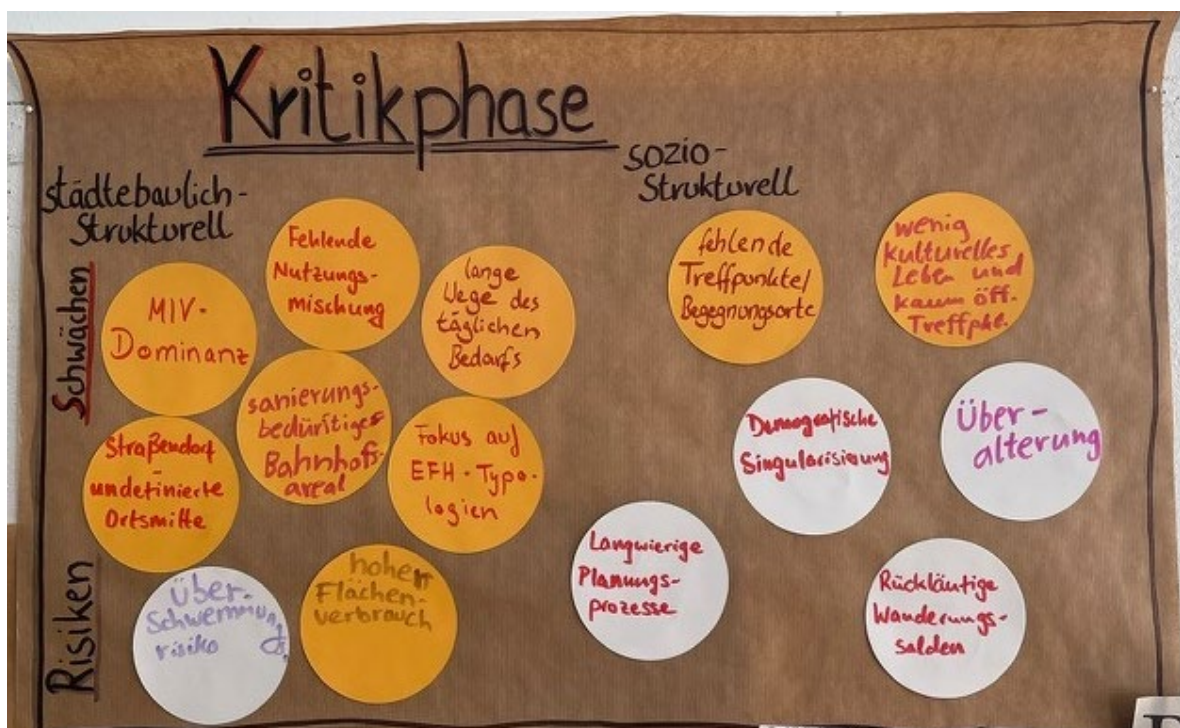 Kritikphase
städtebaulich-
Strukturell
sozio-
Strukturell
Schwächen
MIV-
Dominanz
Fehlende
Nutzungs-
mischung
lange
Wege des
täglichen
Bedarfs
sanierungs-
bedürftiges
Bahnhofs-
areal
Straßendorf
-
undefinierte
Ortsmitte
Fokus auf
EFH-Typo-
logien
fehlende
Treffpunkte/
Begegnungsorte
wenig
kulturelles
Leben und
kaum öff.
Treffpkt.
Demografische
Singularisierung
Über-
alterung
Risiken
Über-
Schwemmungs-
risiko
hoher
Flächen-
verbrauch
Langwierige
Planungs-
prozesse
Rückläufige
Wanderungs-
salden